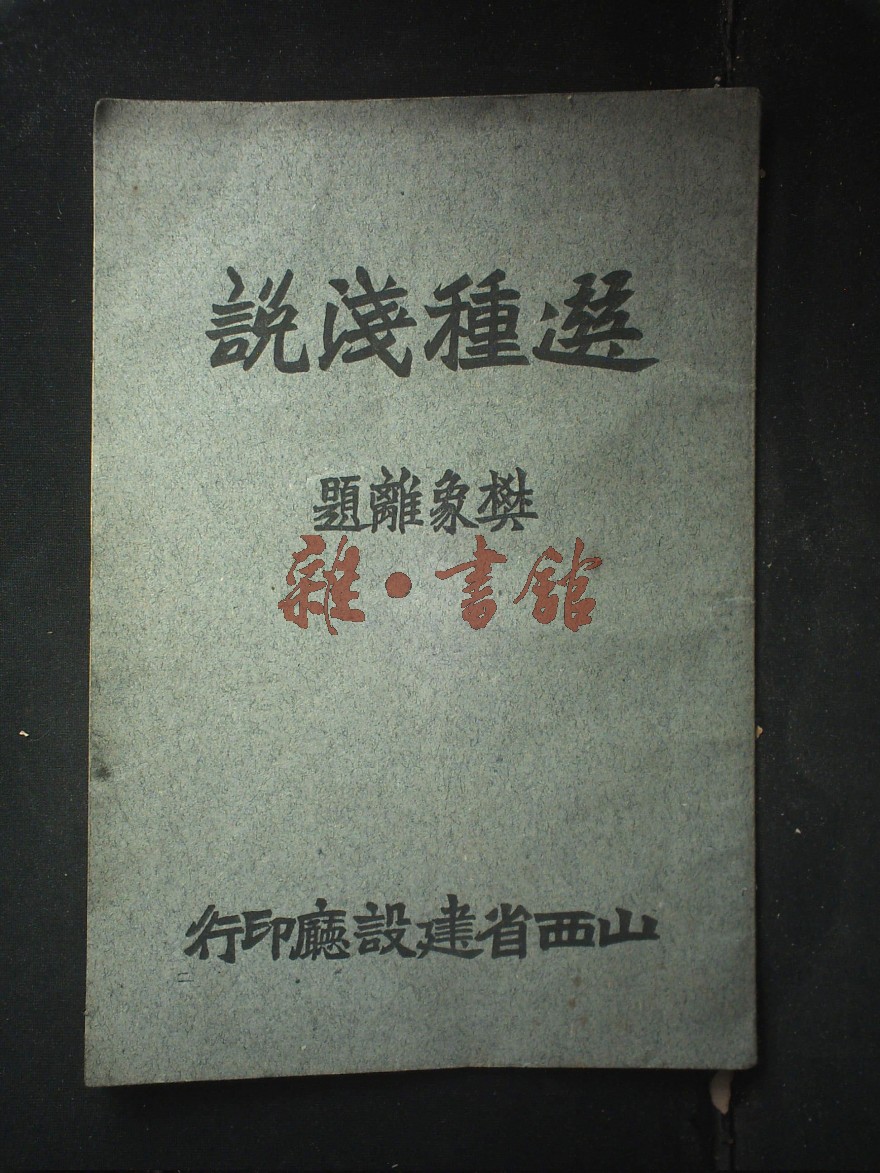 選種淺說
樊象離題
雜·書館
山西省建設廳印行